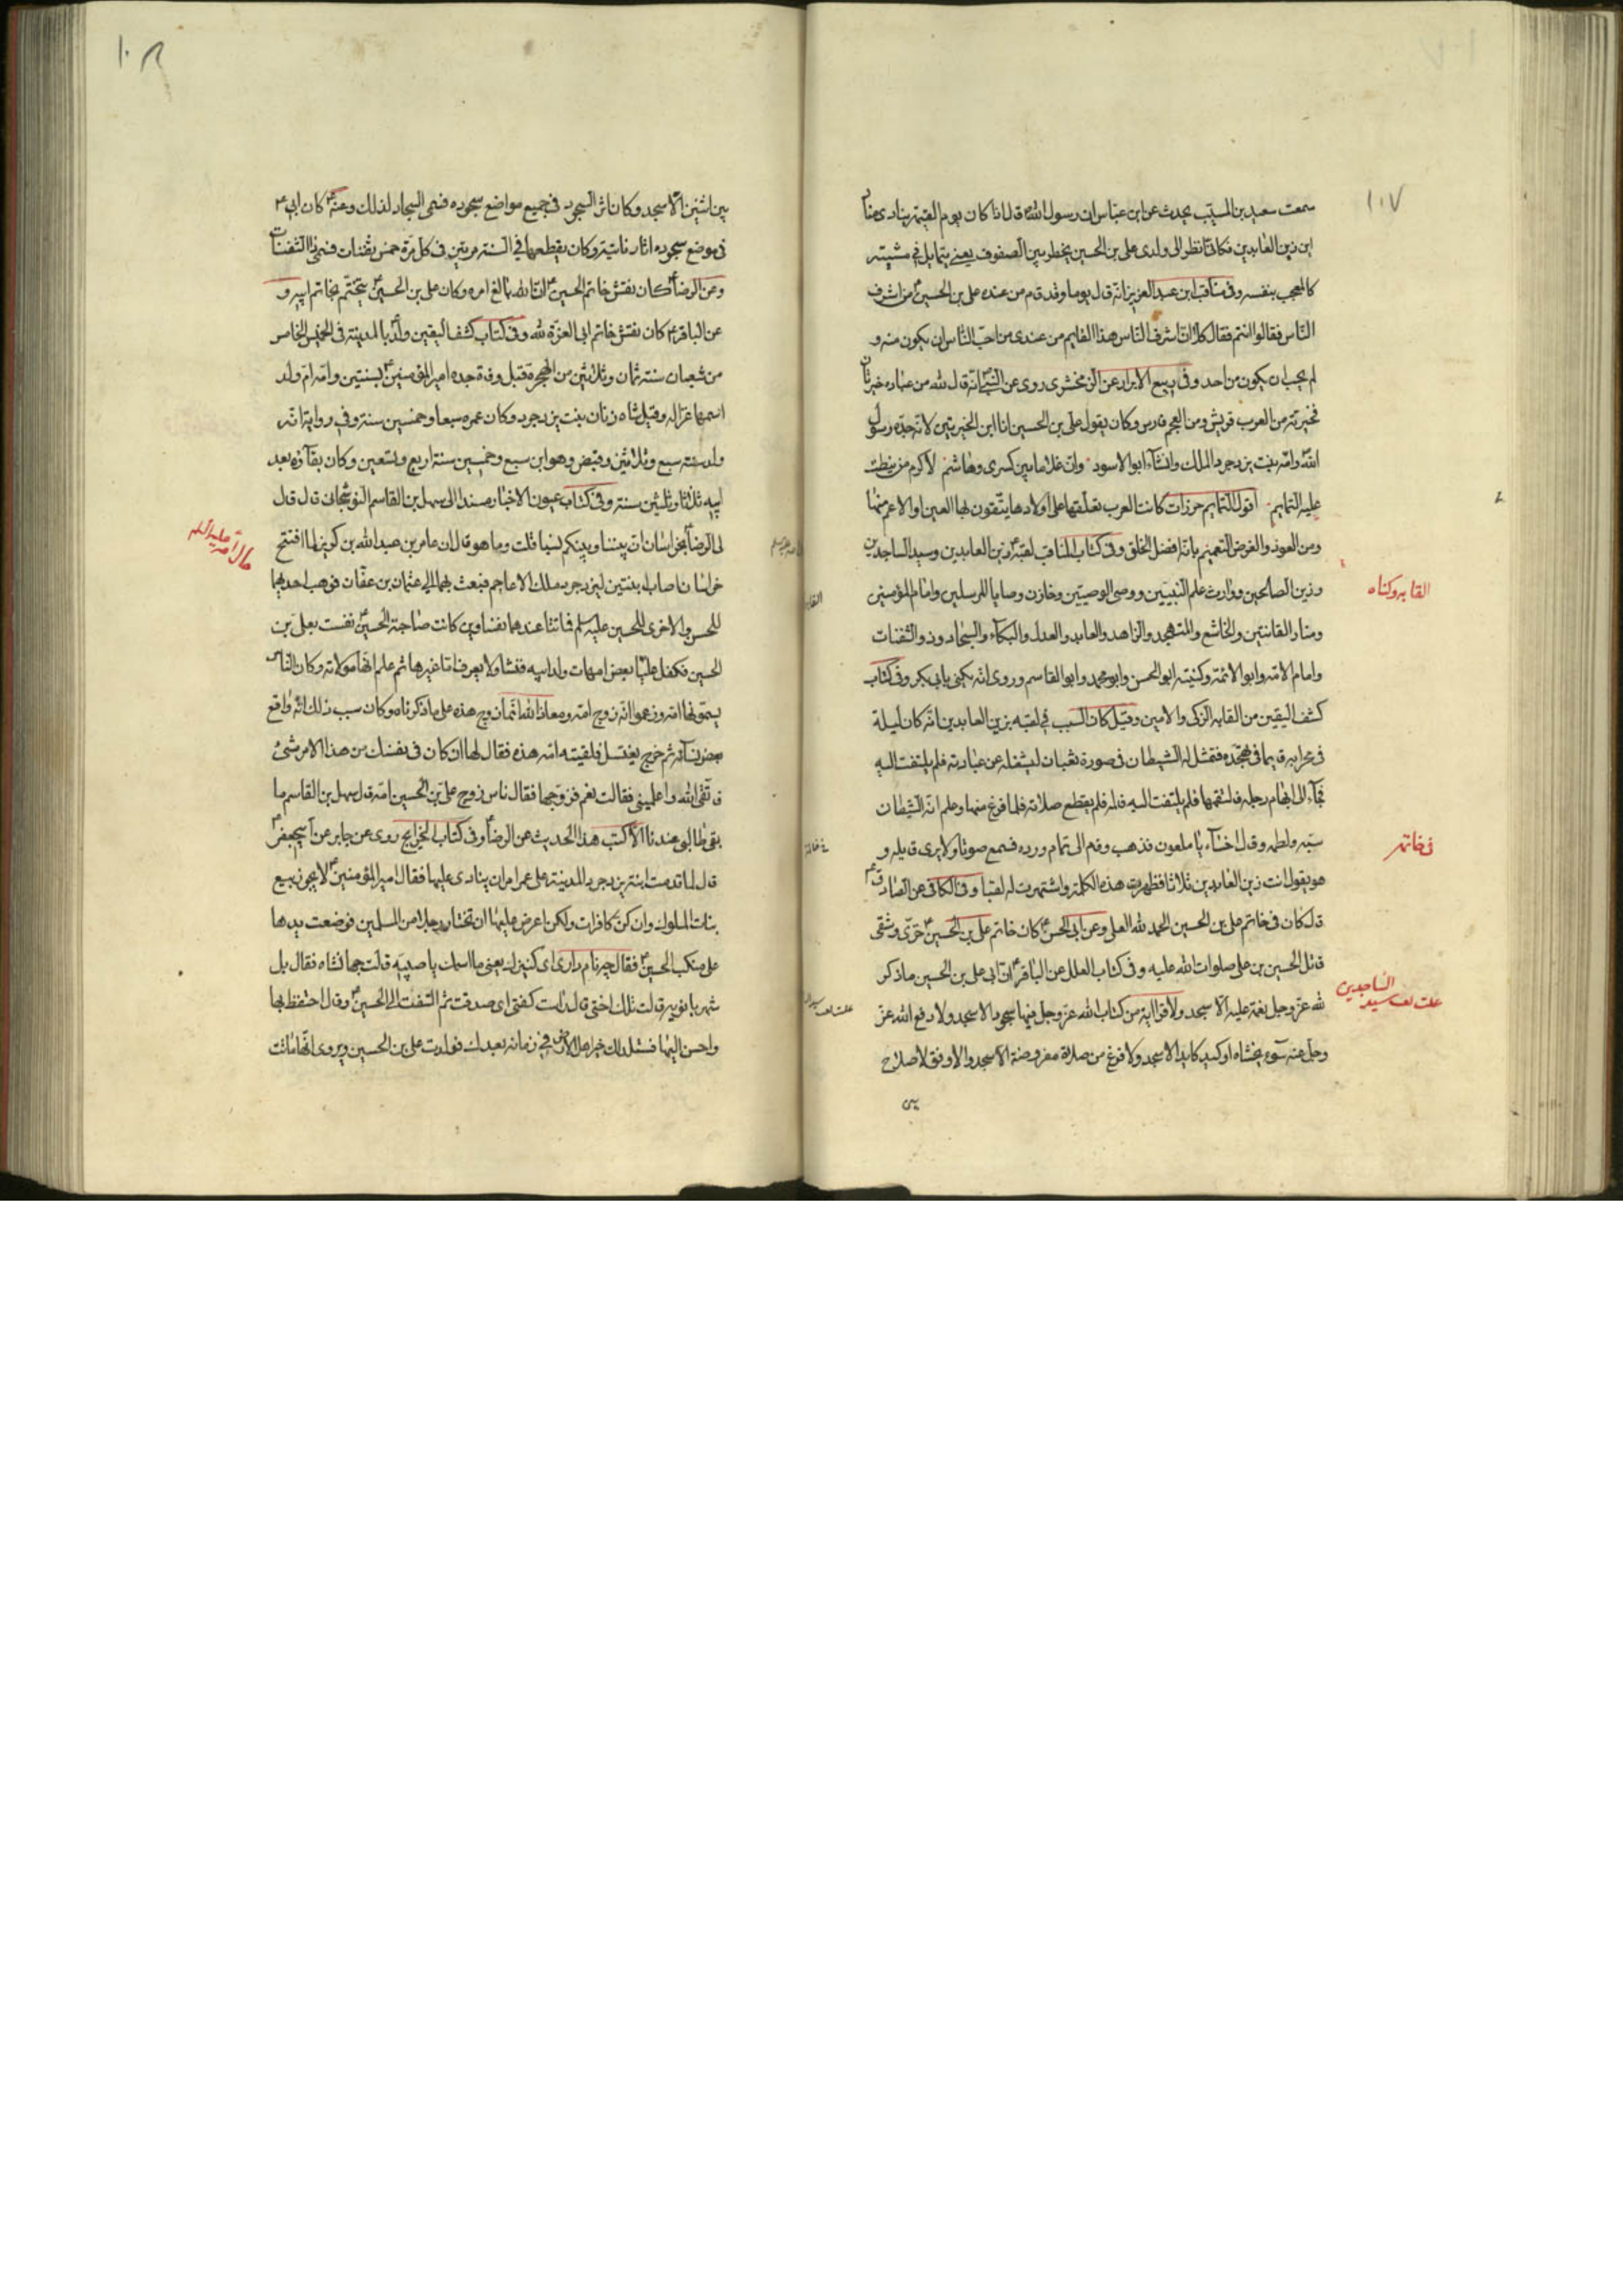 ١٠٧
سمعت سعيد بن المسيّب يحدث عن ابن عبّاس ان رسول الله ص قال اذا كان يوم القيمة ينادى مناد
اين زين العابدين فكانّى انظر الى ولدى على بن الحسين يخطر بين الصفوف يعنى يتمايل فى مشيته
كالمعجب بنفسه وفى مناقب ابن عبد العزيز انّه قال يوما وقد قام من عنده على بن الحسين ع من اشرف
النّاس فقالوا انتم فقال كلا ان اشرف النّاس هذا القايم من عندى من احبّ النّاس ان يكون منه و
لم يحب ان يكون من احد وفى ربيع الابرار عن الزمخشرى روى عن النّبى ص انّه قال لله من عباده خيرتان
فخيرته من العرب قريش ومن العجم فارس وكان يقول على بن الحسين انا ابن الخيرتين لانّ جدّه رسول
الله وامّه بنت يزدجرد الملك وانشاء ابو الاسود وانّ غلاما بين كسرى وهاشم لاكرم من نيطت
عليه التمايم اقول التمايم خرزات كانت العرب تعلّقها على اولادها يتّقون بها العين او الاعم منها
ومن العوذ والغرض التعميم بانّه افضل الخلق وفى كتاب المناقب لقبه ع زين العابدين وسيد الساجدين
وزين الصالحين ووارث علم النبيّين ووصى الوصيّين وخازن وصايا المرسلين وامام المؤمنين
ومنار القانتين والخاشع والمتهجد والزاهد والعابد والعدل والبكّاء والسجّاد وذو الثفنات
وامام الامّة وابو الائمة وكنيته ابو الحسن وابو محمد وابو القاسم وروى انّه يكنى بابى بكر وفى كتاب
كشف اليقين من القابه الزكى والامين وقيل كان السبب فى لقبه بزين العابدين انّه كان ليلة
فى محرابه قايما فى تهجّده فتمثّل له الشيطان فى صورة ثعبان ليشغله عن عبادته فلم يلتفت اليه
فجاء الى ابهام رجله فالتقمها فلم يلتفت اليه فالمه فلم يقطع صلاته فلما فرغ منها وعلم انّه الشيطان
سبّه ولطمه وقال اخساء يا ملعون فذهب وقام الى تمام ورده فسمع صوتا ولا يرى قايله و
هو يقول انت زين العابدين ثلاثا فظهرت هذه الكلمة واشتهرت له لقبا وفى الكافى عن الصادق ع
قال كان فى خاتم على بن الحسين الحمد لله العلى وعن ابى الحسن ع كان خاتم على بن الحسين ع خزى وشقى
قاتل الحسين بن على صلوات الله عليه وفى كتاب العلل عن الباقر ع انّ ابى على بن الحسين ما ذكر
لله عزّ وجل نعمة عليه الا سجد ولا قرا اية من كتاب الله عز وجل فيها سجود الا سجد ولا دفع الله عزّ
وجل عنه سوء يخشاه او كيد كايد الا سجد ولا فرغ من صلاة مفروضة الا سجد ولا وفق لاصلاح
بين
القابه وكناه
فى خاتمه
علت لقب سيد الساجدين
١٠٨
بين اثنين الا سجد وكان اثر السجود فى جميع مواضع سجوده فسمى السجاد لذلك وعنه ع كان ابى ع
فى موضع سجوده اثار ناتية وكان يقطعها فى السنة مرّتين فى كل مرّة خمس ثفنات فسمى ذا الثفنات
وعن الرضا ع كان نقش خاتم الحسين ع ان الله بالغ امره وكان على بن الحسين ع يتختّم بخاتم ابيه و
عن الباقر ع كان نقش خاتم ابى العزّة لله وفى كتاب كشف اليقين ولد ع بالمدينة فى الخميس الخامس
من شعبان سنة ثمان وثلاثين من الهجرة قبل وفاة جده امير المؤمنين ع بسنتين وامّه امّ ولد
اسمها غزاله وقيل شاه زنان بنت يزدجرد وكان عمره سبعا وخمسين سنة وفى رواية انّه
ولد سنة سبع وثلاثين وقبض وهو ابن سبع وخمسين سنة اربع وتسعين وكان بقآؤه بعد
ابيه ثلاثا وثلثين سنة وفى كتاب عيون الاخبار مسندا الى سهل بن القاسم النوشجانى قال قال
لى الرضا ع بخراسان انّ بيننا وبينكم نسبا قلت وما هو قال ان عامر بن عبد الله بن كويز لما افتتح
خراسان اصاب ابنتين ليزدجرد ملك الاعاجم فبعث بهما الى عثمان بن عفّان فوهب احديهما
للحسن والاخرى للحسين عليه سلم فماتتا عندهما نفساوين كانت صاحبة الحسين ع نفست بعلى بن
الحسين فكفل عليّا بعض امهات ولد ابيه فنشا ولا يعرف امّا غيرها ثم علم انّها مولاته وكان النّاس
يسمّونها امّه وزعموا انّه زوج امّه ومعاذ الله انّما زوج هذه على ما ذكرناه وكان سبب ذلك انّه واقع
بعض نسآئه ثم خرج يغتسل فلقيته امّه هذه فقال لها ان كان فى نفسك من هذا الامر شئ
فاتّقى الله واعلمينى فقالت نعم فزوّجها فقال ناس زوج على بن الحسين امّه قال سهل بن القاسم ما
بقى طالبى عندنا الا كتب هذا الحديث عن الرضا ع وفى كتاب الخرايج روى عن جابر عن ابيجعفر ع
قال لما قدمت ابنة يزدجرد المدينة على عمر امر ان ينادى عليها فقال امير المؤمنين ع لا يجوز بيع
بنات الملوك وان كنّ كافرات ولكن اعرض عليها ان تختار رجلا من المسلمين فوضعت يدها
على منكب الحسين ع فقال چه نام دارى اى كنيزك يعنى ما اسمك يا صبيّه قالت جهانشاه فقال بل
شهربانويه قالت تلك اختى قال راست كفتى اى صدقت ثم التفت الى الحسين ع وقال احتفظ بها
واحسن اليها فستلد لك خير اهل الارض فى زمانه بعدك فولدت على بن الحسين ويروى انّها ماتت
حال امّه عليه السلم